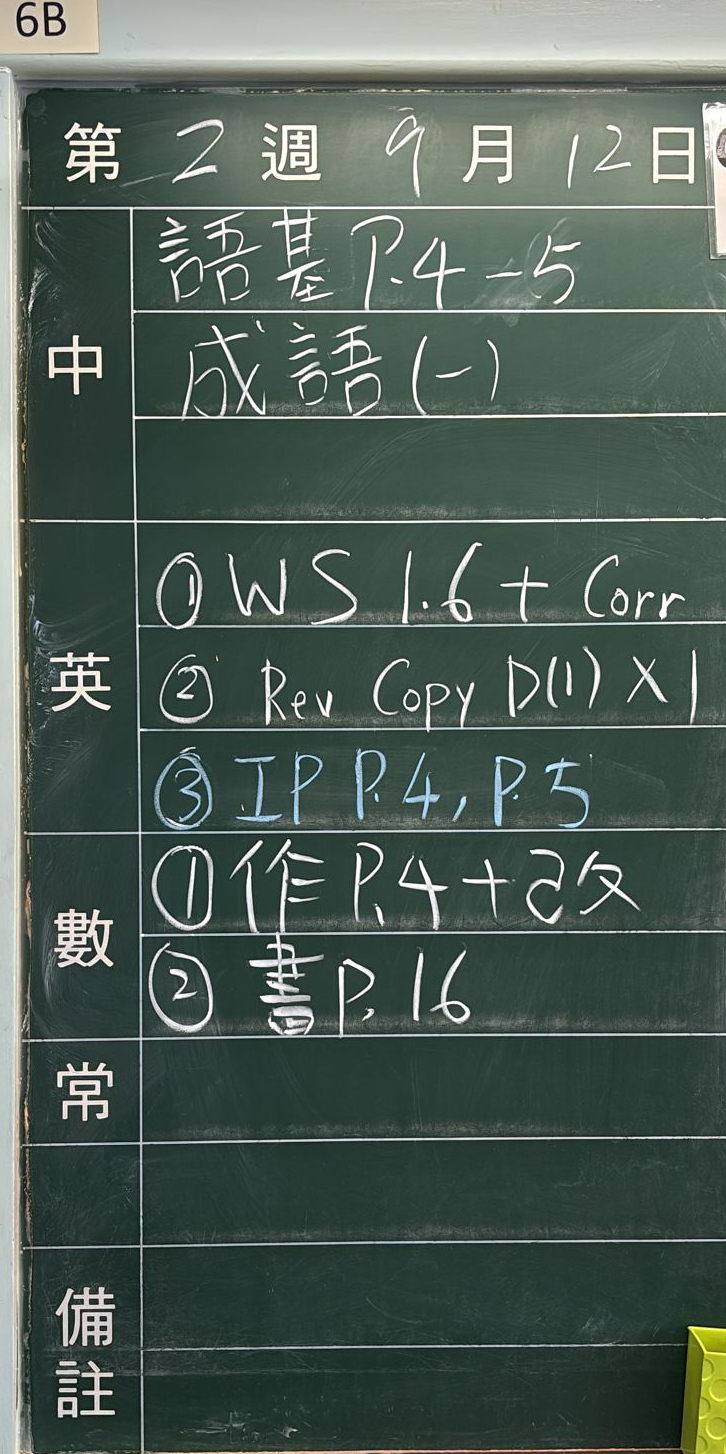 6B
第 2 週 9 月 12 日
中
語基 P.4-5
成語(一)
英
① WS 1.6 + Corr
② Rev Copy D(1) X 1
③ IP P.4, P.5
數
① 作 P.4 + 改
② 書 P.16
常
備註